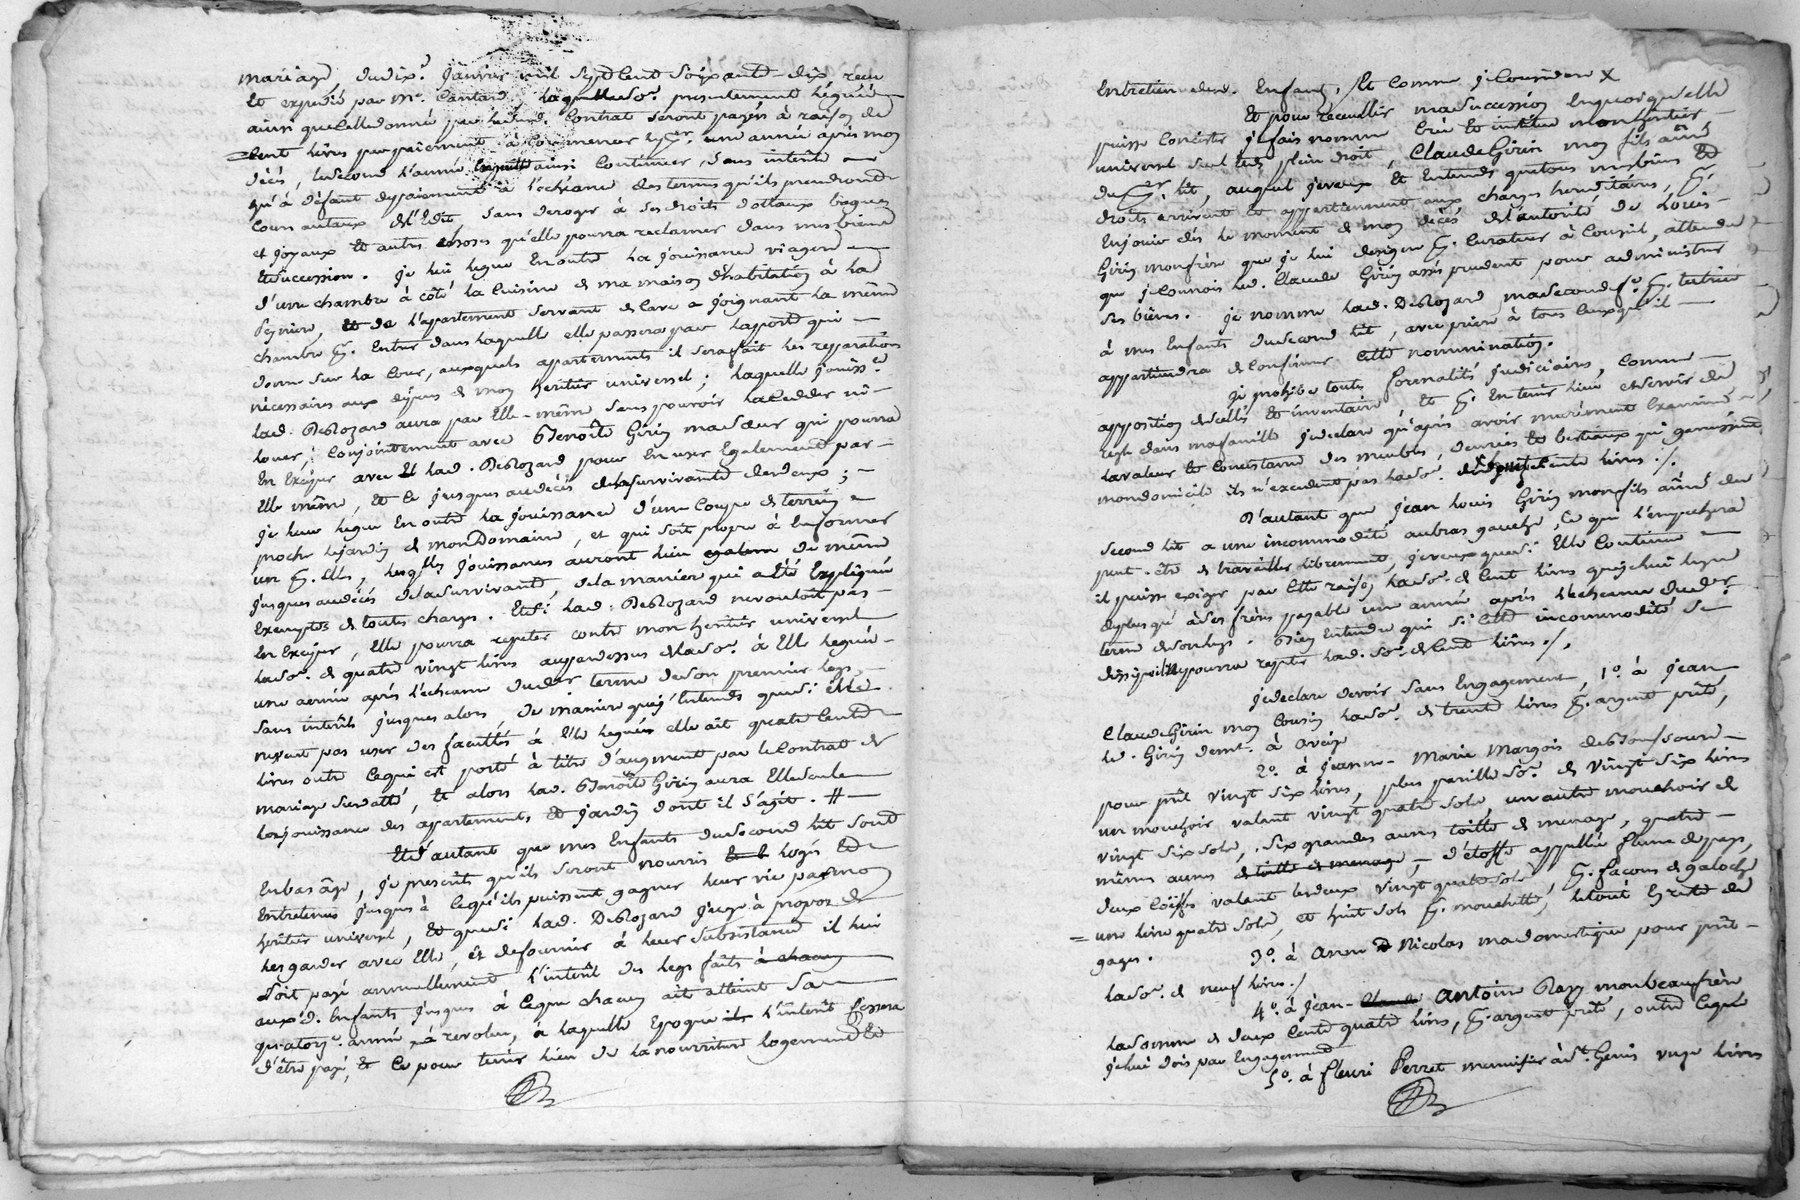 mariage, du dix.e janvier mil sept cent soixante-dix, reçu
et expedié par m.e Cantard, laquelle so.e presentement leguée
ainsi que celle donnée par led. Contrat seront payés à raison de
Cent livres par paiement à commencer le p.er une année après mon
décés, le second l'année ensuitte ainsi continuer, sans interêts
qu'à défaut de paiement à l'échéance des termes qu'ils prendront
cours au taux de l'Edit, sans deroger à ses droits dottaux bagues
et joyaux et autres choses qu'elle pourra reclamer dans mes biens
et succession. je lui legue en outre la jouissance viagere
d'une chambre à côté la cuisine de ma maison d'habitation à la
Peyriere, et de l'appartement servant de cave a joignant la même
chambre p. entrer dans laquelle elle passera par la porte qui
donne sur la cour, auxquels appartements il sera fait les repparations
nécessaires aux dépens de mon heritier universel; laquelle jouiss.e
lad. Deblozard aura par elle-même sans pouvoir la ceder ni
louer, conjointement avec Benoîte Girin ma sœur qui pourra
en exiger avec lad. Deblozard pour en user également par
elle même, et ce jusques au décés de la survivante des deux;
je leur legue en outre la jouissance d'une coupe de terrein
proche le jardin de mon Domaine, et qui soit propre à en former
un p. elles, lesq.lles jouissances auront lieu de même
jusques au décés de la survivante, de la maniere qui a été expliquée
exemptes de toutes charges. Et si lad. Deblozard ne vouloit pas
en exiger, elle pourra repeter contre mon heritier universel
la so.e de quatre vingt livres au par dessus de la so.e à elle leguée
une année après l'échéance du d.er terme de son premier legs
sans interêts jusques alors, de maniere que j'entends que si elle
ne veut pas user des facultés à elle leguées elle ait quatre cents
livres outre ce qui est porté à titre d'augment par le contrat de
mariage sus datté, et alors lad. Benoîte Girin aura elle seule
la jouissance des apartements et jardin dont il s'agit. #
Et d'autant que mes Enfants du second lit sont
en bas âge, je prescrits qu'ils seront nourris logés et
entretenus jusques à ce qu'ils puissent gagner leur vie par mon
heritier universel, et que si lad. Deblozard juge à propos de
les garder avec elle, et de fournir à leur subsistance il lui
soit payé annuellement l'interêt des legs faits à chacun
aux d. Enfants jusques à ce que chacun ait atteint sa
quatorz.e année revolue, à laquelle époque l'interêt cessera
d'être payé, et ce pour tenir lieu de la nourriture logement et
entretien de d. Enfants, Et comme je Considere X
Et pour recueillir ma succession en quoi qu'elle
puisse consister je fais nomme crée et institue mon heritier
universel seul et de plein droit, Claude Girin mon fils aîné
du p.er lit, auquel je veux et entends que tous mes biens et
droits arrivent et appartiennent aux charges hereditaires, p.
en jouir dès le moment de mon décés de l'autorité de Louis
Girin mon frère que je lui designe p. curateur à conseil, attendu
que je connois led. Claude Girin assés prudent pour administrer
ses biens. je nomme lad. Deblozard ma seconde f.e p. tutrice
à mes enfants du second lit, avec priere à tous ceux qu'il
appartiendra de confirmer cette nommination.
je prohibe toutes formalités judiciaires, comme
apposition de scellés et inventaire et p. en tenir lieu et servir de
regle dans ma famille je declare qu'après avoir murement examiné
la valeur et consistance des meubles, denrées et bestiaux qui garnissent
mon domicile ils n'excedent pas la so.e de cents livres ./.
D'autant que jean Louis Girin mon fils aîné du
second lit a une incommodité au bras gauche, ce qui l'empechera
peut-être de travailler librement, je veux que si elle continue
il puisse exiger par cette raison la so.e de cent livres que je lui legue
de plus qu'à ses frères payable une année après l'échéance du d.er
terme de son legs. Bien entendu que si cette incommodité se
dissipoit il ne pourra repeter lad. so.e de cent livres ./.
je declare devoir sans engagement, 1.o à jean
Claude Girin mon cousin la so.e de trente livres p. argent prêté,
led. Girin dem.t à Aveize
2.o à jeanne-Marie Margois de
pour prêt vingt six livres, plus pareille so.e de vingt six livres
un mouchoir valant vingt quatre sols, un autre mouchoir de
vingt six sols, six grandes aunes toille de menage, quatre
mêmes aunes de toille de menage, d'étoffe appellée,
deux coiffes valant les deux vingt quatre sols, p. façons de galoche
une livre quatre sols, et huit sols p. mouchette, le tout en reste de
gages.
3.o à Anne Nicolas ma domestique pour prêt
la so.e de neuf livres ./
4.o à jean-Claude Antoine Razy mon beaufrère
la somme de deux cents quatre livres, p. argent prêté, outre ce que
je lui dois par engagement
5.o à fleuri Perret menuisier à S.t Genis onze livres